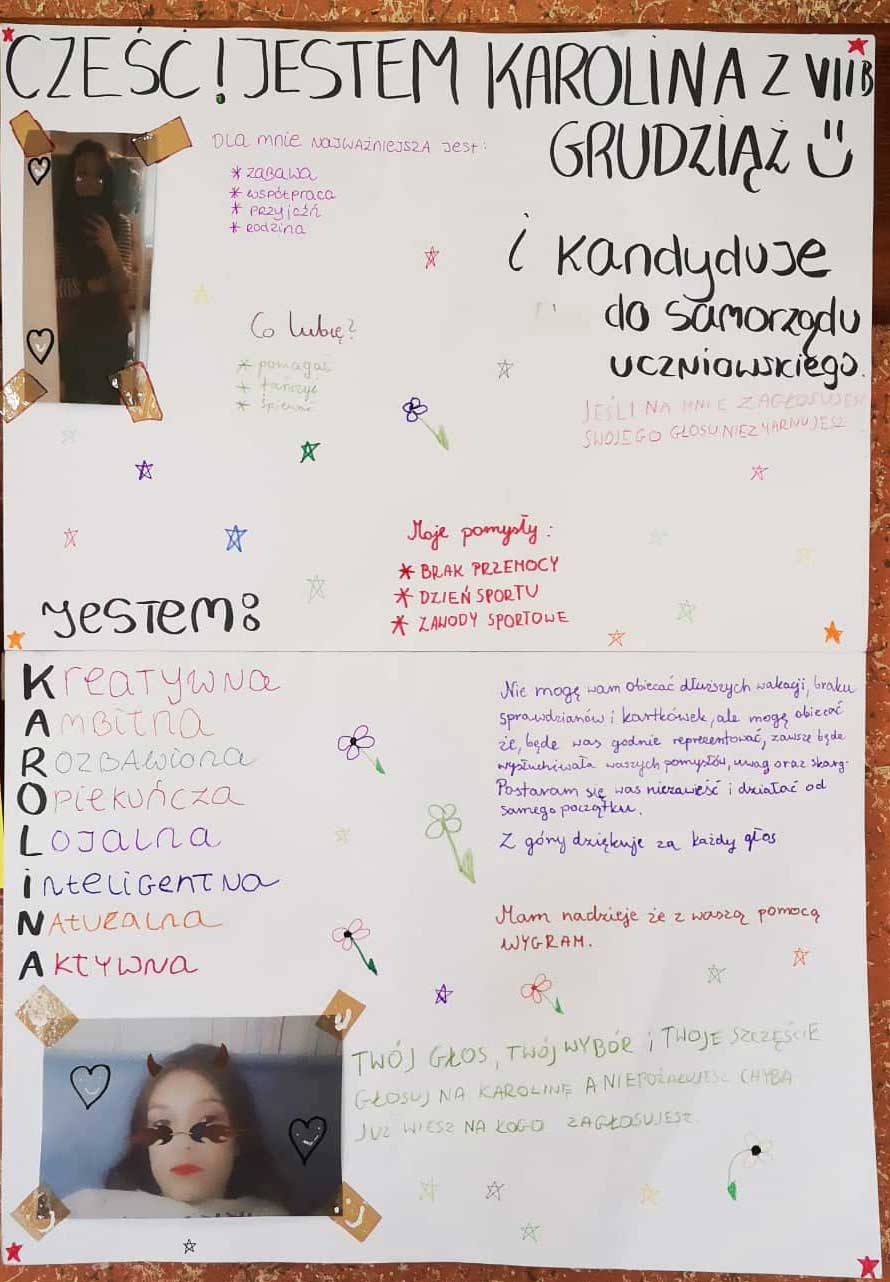 CZEŚĆ! JESTEM KAROLINA Z VII B
GRUDZIĄŻ
i kandyduje
do samorządu
uczniowskiego.
JEŚLI NA MNIE ZAGŁOSUJESZ
SWOJEGO GŁOSU NIE ZMARNUJESZ
DLA mnie NAJWAŻNIEJSZA jest:
* ZABAWA
* WSPÓŁPRACA
* PRZYJAŹŃ
* RODZINA
Co lubię?
* pomagać
* tańczyć
* śpiewać
Moje pomysły:
* BRAK PRZEMOCY
* DZIEŃ SPORTU
* ZAWODY SPORTOWE
JESTEM:
KREATYWNA
AMBITNA
ROZBAWIONA
OPIEKUŃCZA
LOJALNA
INTELIGENTNA
NATURALNA
AKTYWNA
Nie mogę wam obiecać dłuższych wakacji, braku
sprawdzianów i kartkówek, ale mogę obiecać
że, będę was godnie reprezentować, zawsze będę
wysłuchiwała waszych pomysłów, uwag oraz skarg.
Postaram się was niezawieść i działać od
samego początku.
Z góry dziękuje za każdy głos
Mam nadzieje że z waszą pomocą
WYGRAM.
TWÓJ GŁOS, TWÓJ WYBÓR i TWOJE SZCZĘŚCIE
GŁOSUJ NA KAROLINĘ A NIEPOŻAŁUJESZ CHYBA
JUŻ WIESZ NA KOGO ZAGŁOSUJESZ.